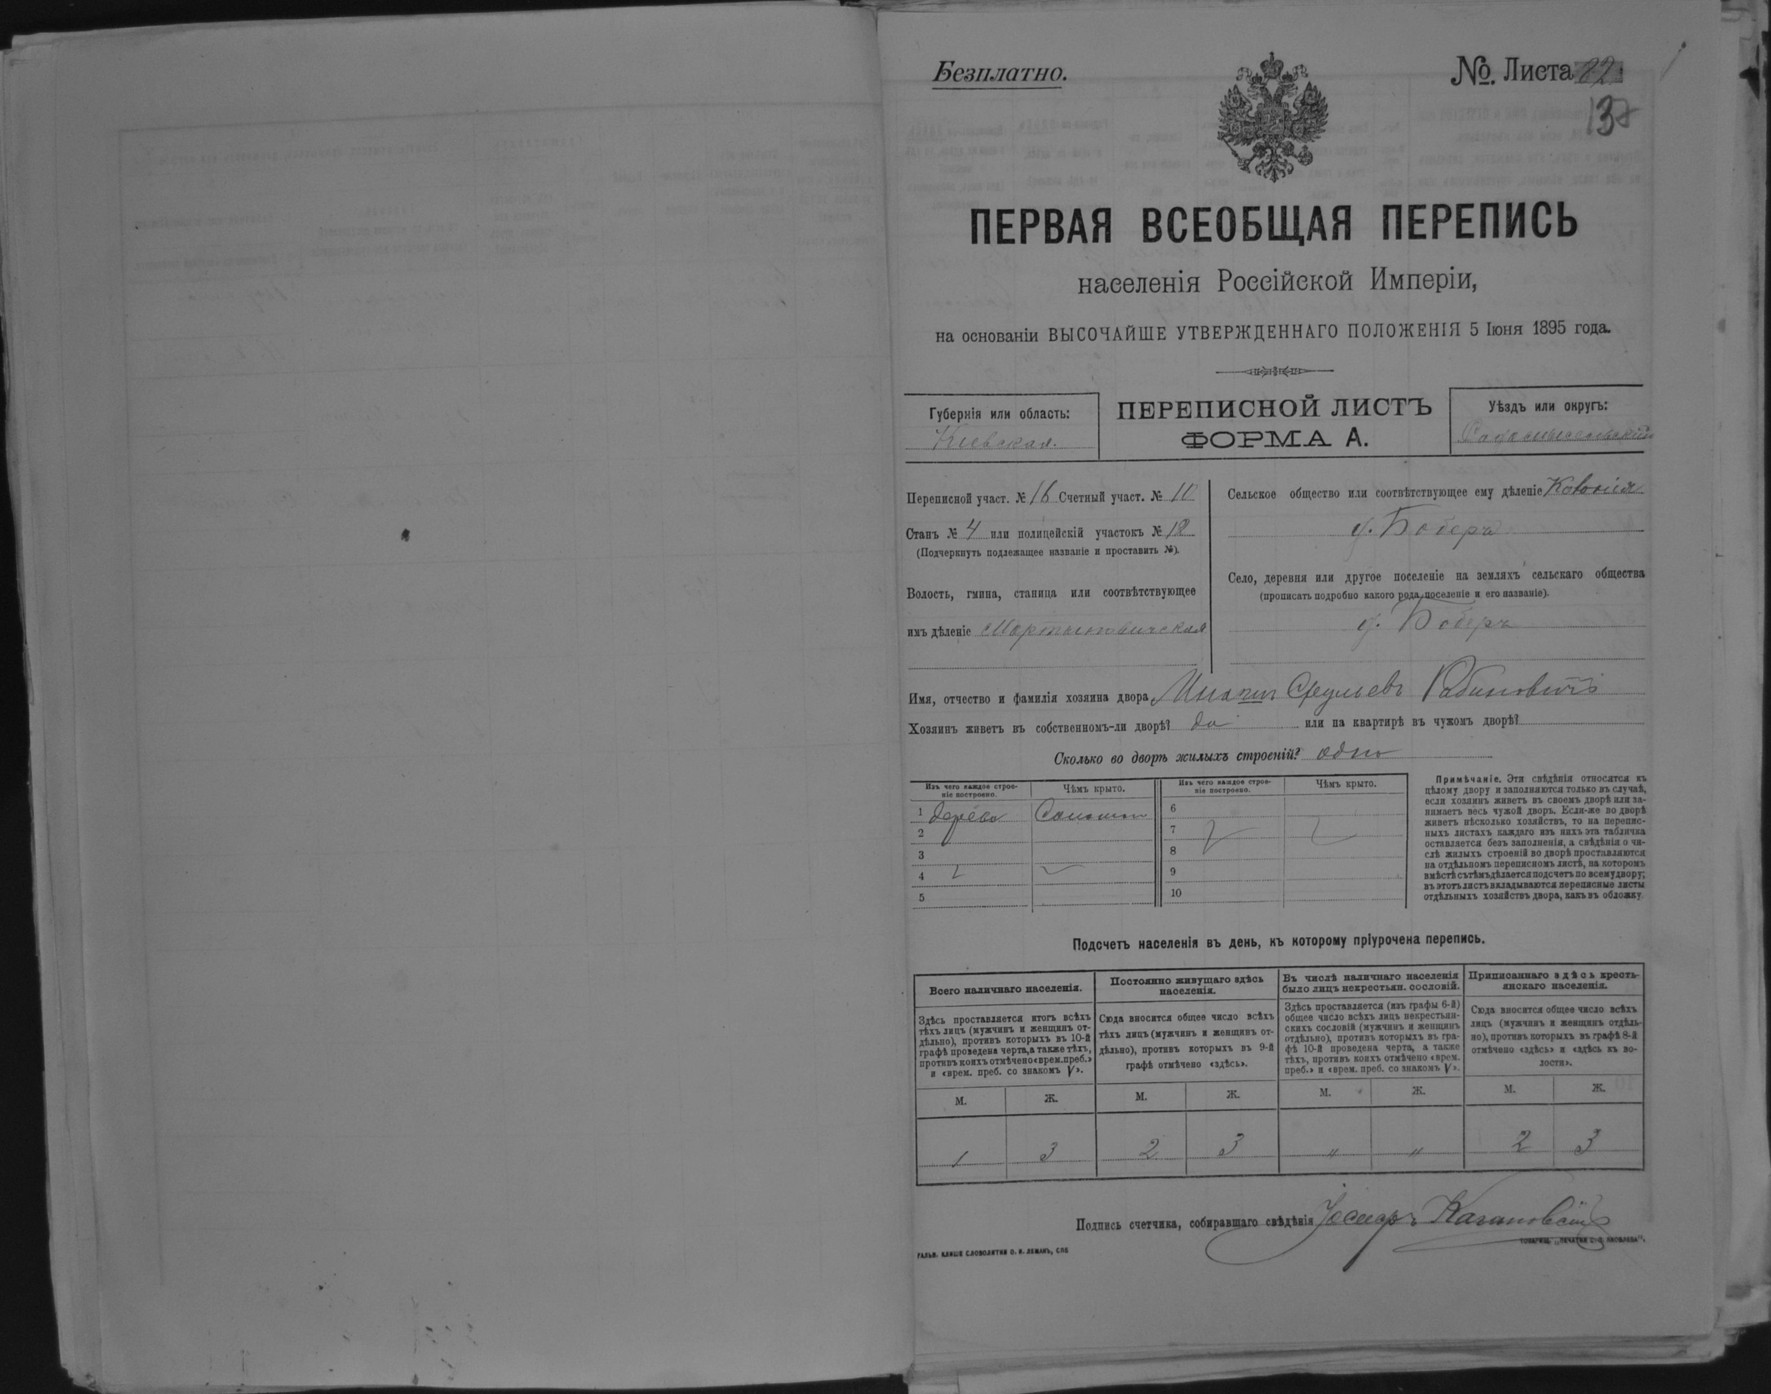 Безплатно.
№. Листа 22
137
ПЕРВАЯ ВСЕОБЩАЯ ПЕРЕПИСЬ
населенія Россійской Имперіи,
на основаніи ВЫСОЧАЙШЕ УТВЕРЖДЕННАГО ПОЛОЖЕНІЯ 5 Іюня 1895 года.
Губернія или область:
Кіевская.
ПЕРЕПИСНОЙ ЛИСТЪ
ФОРМА А.
Уѣздъ или округъ:
Радомысльскій
Переписной участ. № 16 Счетный участ. № 11
Станъ № 4 или полицейскій участокъ № 12
(Подчеркнуть подлежащее названіе и проставить №).
Волость, гмина, станица или соотвѣтствующее
имъ дѣленіе Мартыновичская
Сельское общество или соотвѣтствующее ему дѣленіе Колонія
у. Боберъ
Село, деревня или другое поселеніе на земляхъ сельскаго общества
(прописать подробно какого рода поселеніе и его названіе).
у. Боберъ
Имя, отчество и фамилія хозяина двора Срулевъ Рабиновичъ
Хозяинъ живетъ въ собственномъ-ли дворѣ? да или на квартирѣ въ чужомъ дворѣ?
Сколько во дворѣ жилыхъ строеній? одно
Изъ чего каждое строе-
ніе построено.
Чѣмъ крыто.
Изъ чего каждое строе-
ніе построено.
Чѣмъ крыто.
1 дерева Соломою
2
3
4
5
6
7
8
9
10
Примѣчаніе. Эти свѣдѣнія относятся къ
цѣлому двору и заполняются только въ случаѣ,
если хозяинъ живетъ въ своемъ дворѣ или за-
нимаетъ весь чужой дворъ. Если-же во дворѣ
живетъ нѣсколько хозяйствъ, то на перепис-
ныхъ листахъ каждаго изъ нихъ эта табличка
оставляется безъ заполненія, а свѣдѣнія о чи-
слѣ жилыхъ строеній во дворѣ проставляются
на отдѣльномъ переписномъ листѣ, на которомъ
вмѣстѣ съ тѣмъ дѣлается подсчетъ по всему двору;
въ этотъ листъ вкладываются переписные листы
отдѣльныхъ хозяйствъ двора, какъ въ обложку
Подсчетъ населенія въ день, къ которому пріурочена перепись.
Всего наличнаго населенія.
Здѣсь проставляется итогъ всѣхъ
тѣхъ лицъ (мужчинъ и женщинъ от-
дѣльно), противъ которыхъ въ 10-й
графѣ проведена черта, а также тѣхъ,
противъ коихъ отмѣчено «врем. преб.»
и «врем. преб. со знакомъ V».
Постоянно живущаго здѣсь
населенія.
Сюда вносится общее число всѣхъ
тѣхъ лицъ (мужчинъ и женщинъ от-
дѣльно), противъ которыхъ въ 9-й
графѣ отмѣчено «здѣсь».
Въ числѣ наличнаго населенія
было лицъ некрестьян. сословій.
Здѣсь проставляется (изъ графы 6-й)
общее число всѣхъ лицъ некрестьян-
скихъ сословій (мужчинъ и женщинъ
отдѣльно), противъ которыхъ въ гра-
фѣ 10-й проведена черта, а также
тѣхъ, противъ коихъ отмѣчено «врем.
преб.» и «врем. преб. со знакомъ V».
Приписаннаго здѣсь кресть-
янскаго населенія.
Сюда вносится общее число всѣхъ
лицъ (мужчинъ и женщинъ отдѣль-
но), противъ которыхъ въ графѣ 8-й
отмѣчено «здѣсь» и «здѣсь въ во-
лости».
М. Ж. М. Ж. М. Ж. М. Ж.
1 3 2 3 " " 2 3
Подпись счетчика, собиравшаго свѣдѣнія Іосифъ Кагановскій
ГАЛЬВ. КЛИШЕ СЛОВОЛИТНИ О. И. ЛЕМАНЪ, СПБ